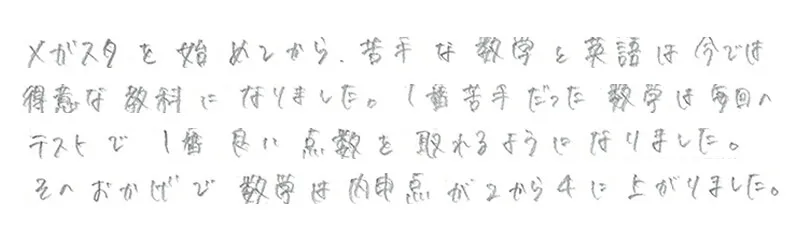 メガスタを始めてから、苦手な数学と英語は今では
得意な教科になりました。1番苦手だった数学は毎回の
テストで1番良い点数を取れるようになりました。
そのおかげで数学は内申点が2から4に上がりました。